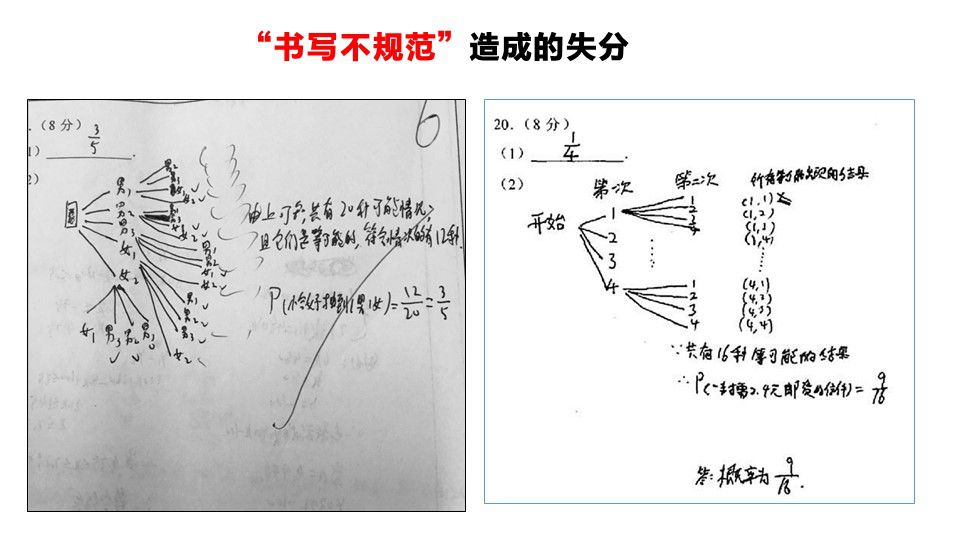 “书写不规范”造成的失分
6
.(8分)
1) 3/5 .
2)
男1
男2
男3
女1
女2
由上可知,共有20种可能情况,
且它们是等可能的,符合情况的有12种.
P(恰好抽到1男1女)=12/20=3/5
女1 男3 男2 男1
20.(8分)
(1) 1/4 .
(2)
第一次 第二次 所有等可能出现的结果
开始
1 1 (1,1)
2 (1,2)
3 (1,3)
4 (1,4)
2
3
4 1 (4,1)
2 (4,2)
3 (4,3)
4 (4,4)
∵共有16种等可能的结果
∴P(一封2.4元即受的信件)=9/16
答:概率为9/16.